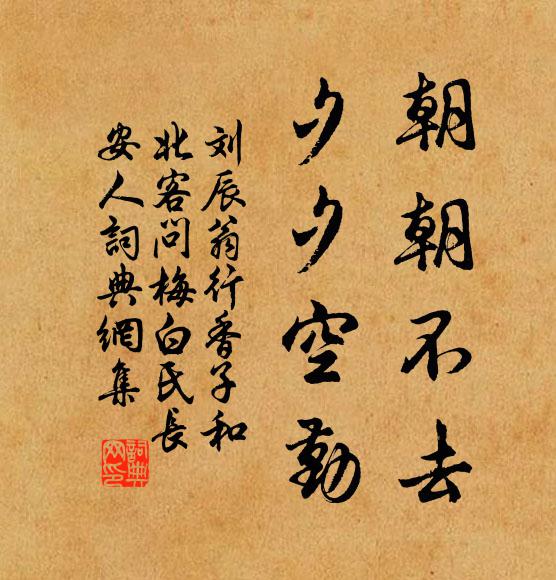 朝朝不去
夕夕空勤
刘辰翁行香子和
北客问梅白氏长
安人詞典網集
詞典網印